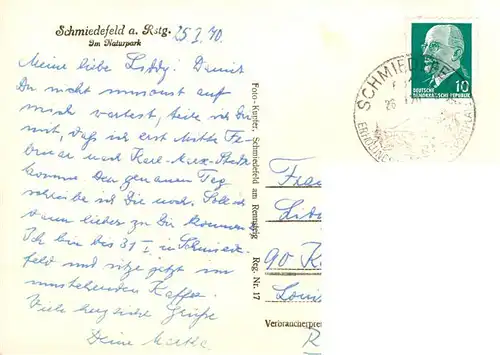 Schmiedefeld a. Rstg.
Im Naturpark
25 I. 70.
Meine liebe Liddy! Damit
Du nicht umsonst auf
mich wartest, teile ich Dir
mit, daß ich erst Mitte Fe-
bruar nach Karl-Marx-Stadt
komme. Den genauen Tag
schreibe ich Dir noch. Soll ich
dann lieber zu Dir kommen?
Ich bin bis 31 I. in Schmiede-
feld und sitze jetzt im
Kaffee.
Viele herzliche Grüße
Deine
Foto-Kupfer, Schmiedefeld am Rennsteig Reg. Nr. 17
DEUTSCHE
DEMOKRATISCHE REPUBLIK
10
SCHMIEDEFE
Frau
90 K
Verbraucherprei